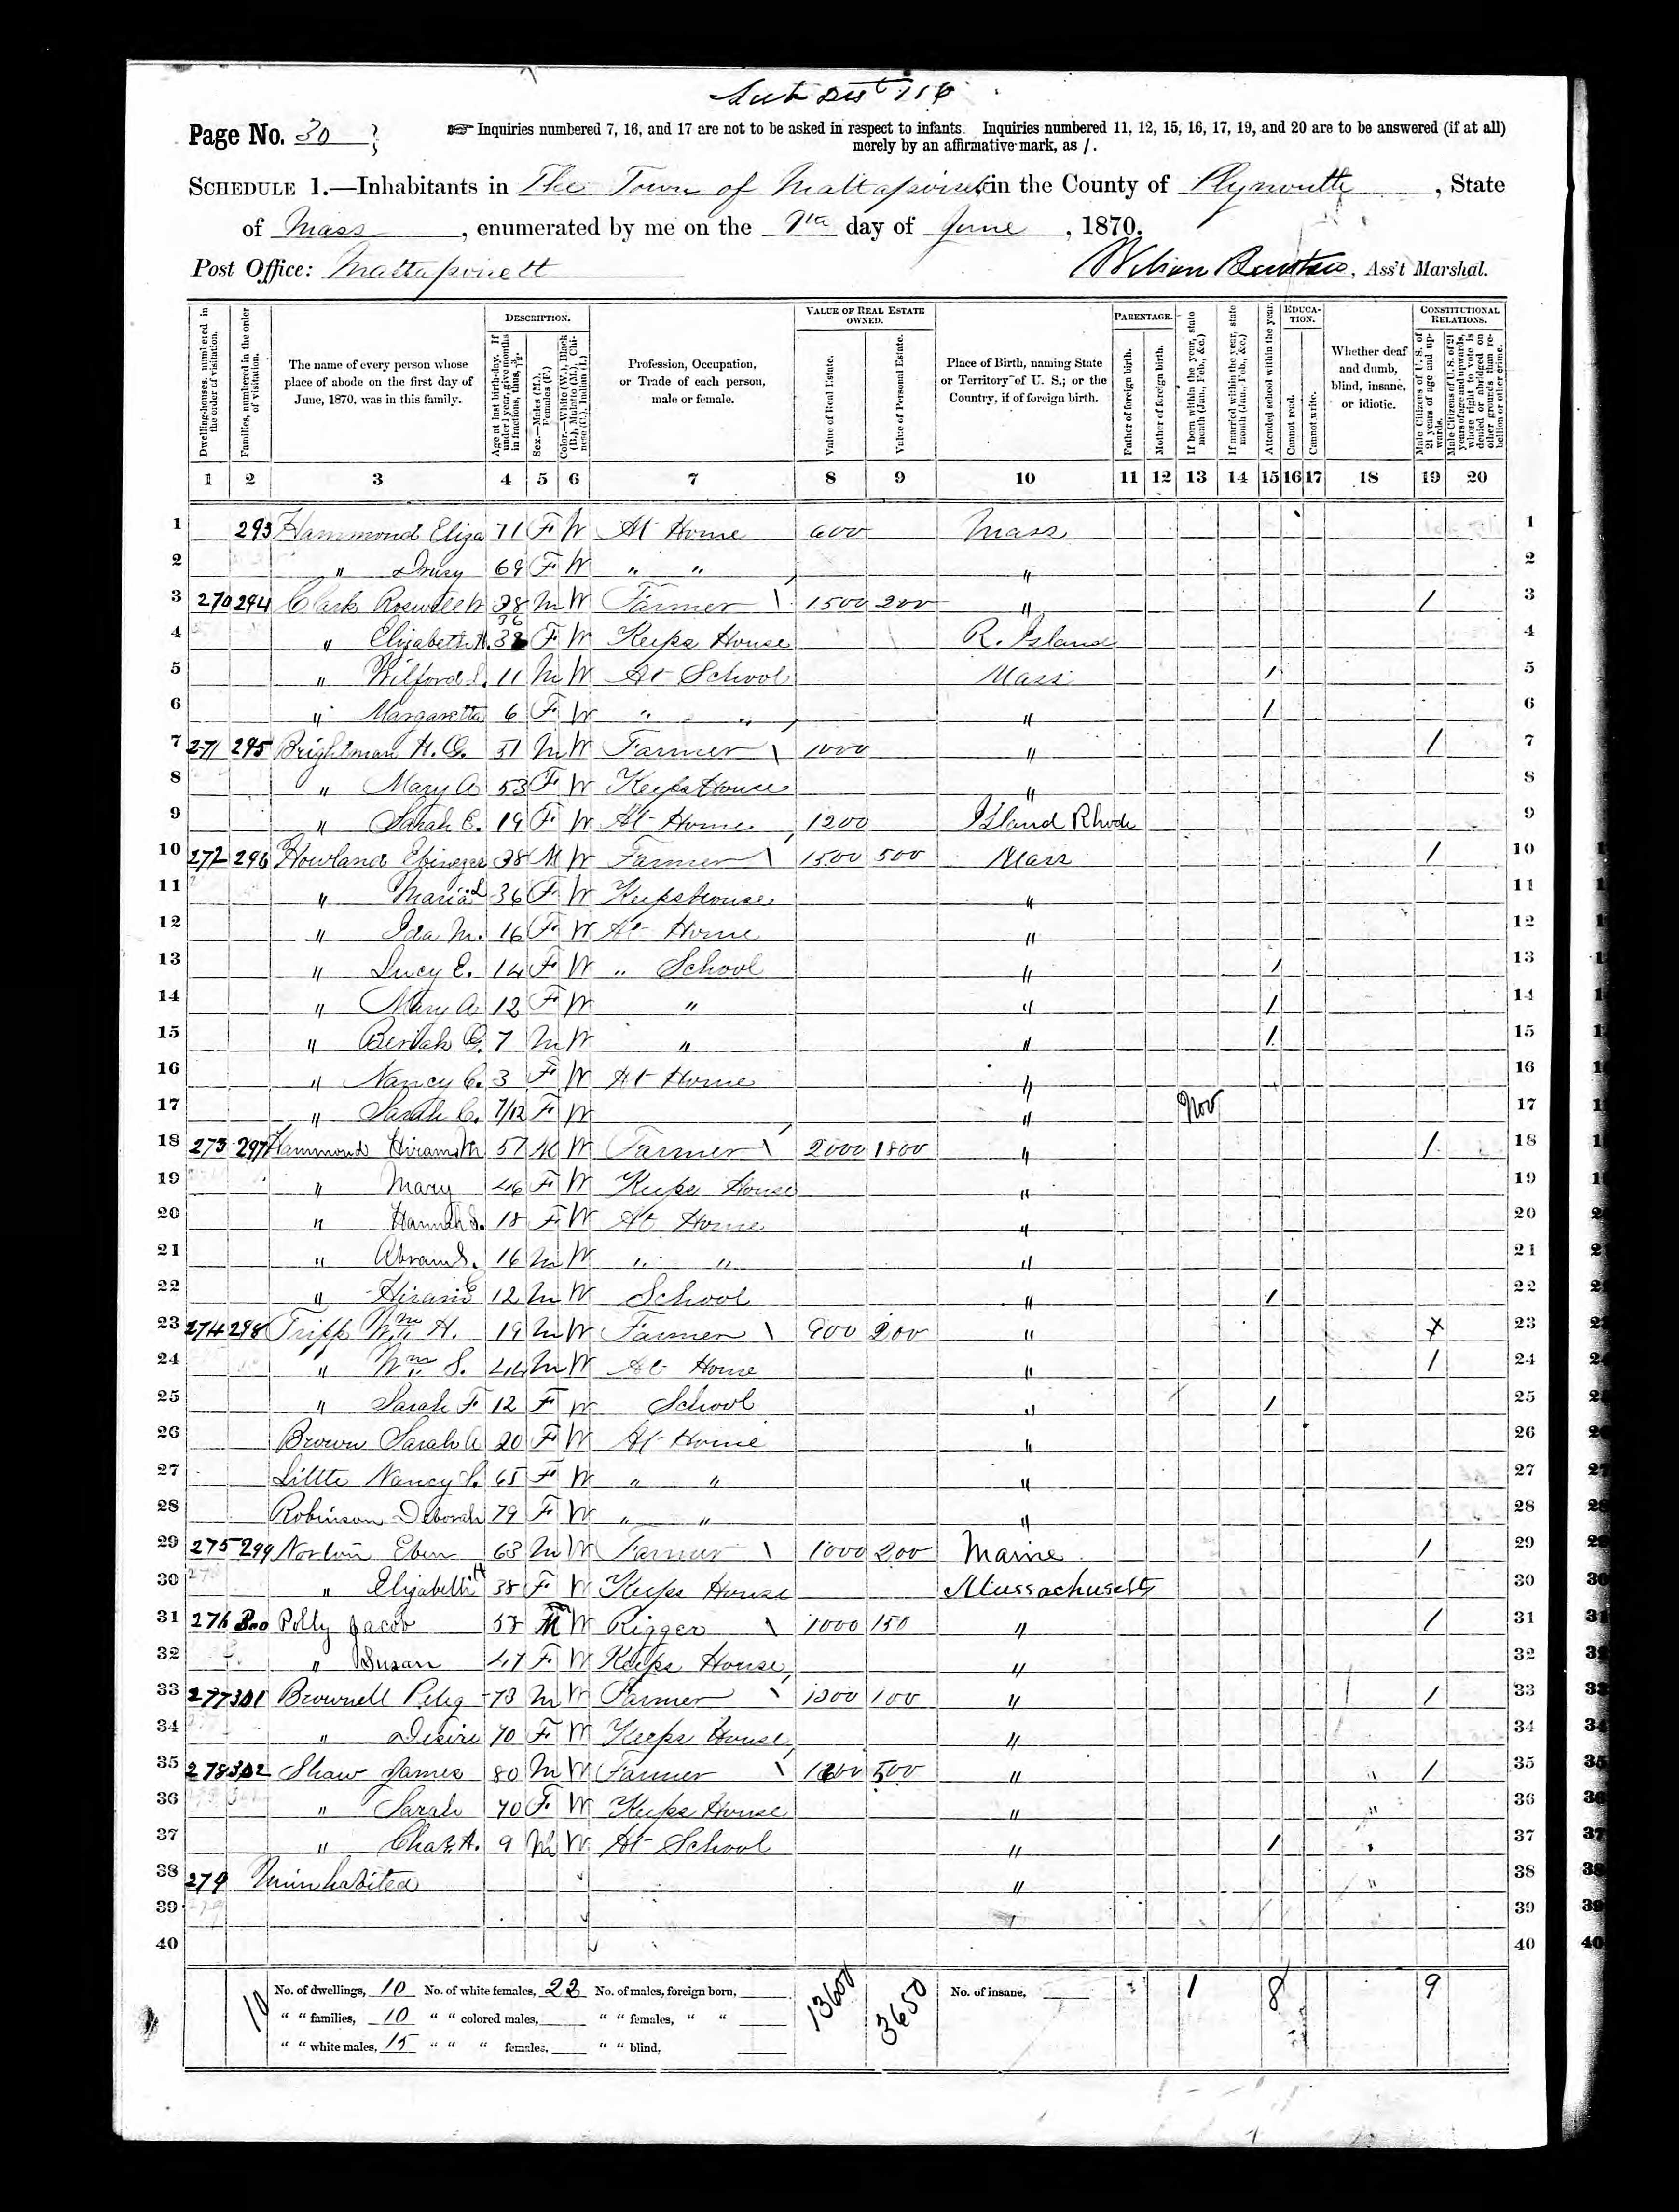 Sub Dist 116
Page No. 30
☞ Inquiries numbered 7, 16, and 17 are not to be asked in respect to infants. Inquiries numbered 11, 12, 15, 16, 17, 19, and 20 are to be answered (if at all)
merely by an affirmative mark, as /.
SCHEDULE 1.—Inhabitants in The Town of Mattapoisett, in the County of Plymouth, State
of Mass, enumerated by me on the 9th day of June, 1870.
Post Office: Mattapoisett Wilson Barstow, Ass't Marshal.
DESCRIPTION. VALUE OF REAL ESTATE OWNED. PARENTAGE. EDUCATION. CONSTITUTIONAL RELATIONS.
Dwelling-houses, numbered in the order of visitation.
Families, numbered in the order of visitation.
The name of every person whose place of abode on the first day of June, 1870, was in this family.
Age at last birth-day. If under 1 year, give months in fractions, thus, 3/12.
Sex.—Males (M.), Females (F.)
Color.—White (W.), Black (B.), Mulatto (M.), Chinese (C.), Indian (I.)
Profession, Occupation, or Trade of each person, male or female.
Value of Real Estate.
Value of Personal Estate.
Place of Birth, naming State or Territory of U. S.; or the Country, if of foreign birth.
Father of foreign birth.
Mother of foreign birth.
If born within the year, state month (Jan., Feb., &c.)
If married within the year, state month (Jan., Feb., &c.)
Attended school within the year.
Cannot read.
Cannot write.
Whether deaf and dumb, blind, insane, or idiotic.
Male Citizens of U. S. of 21 years of age and upwards.
Male Citizens of U. S. of 21 years of age and upwards, whose right to vote is denied or abridged on other grounds than rebellion or other crime.
1 2 3 4 5 6 7 8 9 10 11 12 13 14 15 16 17 18 19 20
1 293 Hammond Eliza 71 F W At Home 600 Mass 1
2 " Drusy 69 F W " " " 2
3 270 294 Clark Roswell W 38 M W Farmer \ 1500 200 " / 3
4 " Elizabeth A. 36 F W Keeps House R. Island 4
5 " Wilford S. 11 M W At School Mass / 5
6 " Margaretta 6 F W " " " / 6
7 271 295 Brightman H. G. 51 M W Farmer \ 1000 " / 7
8 " Mary A 53 F W Keeps House " 8
9 " Sarah E. 19 F W At Home 1200 Island Rhode 9
10 272 296 Howland Ebenezer 38 M W Farmer \ 1500 500 Mass / 10
11 " Maria L 36 F W Keeps house " 11
12 " Ida M. 16 F W At Home " 12
13 " Lucy E. 14 F W " School " / 13
14 " Mary A 12 F W " " / 14
15 " Beriah G. 7 M W " " / 15
16 " Nancy C. 3 F W At Home " 16
17 " Sarah C. 7/12 F W " Nov 17
18 273 297 Hammond Hiram M 57 M W Farmer \ 2000 1800 " / 18
19 " Mary 46 F W Keeps House " 19
20 " Hannah S. 18 F W At Home " 20
21 " Abram S. 16 M W " " " 21
22 " Hiram E 12 M W School " / 22
23 274 298 Tripp Wm H. 19 M W Farmer \ 900 200 " 23
24 " Wm S. 44 M W At Home " / 24
25 " Sarah F 12 F W School " / 25
26 Brown Sarah A 20 F W At Home " 26
27 Little Nancy S. 65 F W " " " 27
28 Robinson Deborah 79 F W " " " 28
29 275 299 Norton Eben 63 M W Farmer \ 1000 200 Maine / 29
30 " Elizabeth H 38 F W Keeps House Massachusetts 30
31 276 300 Polly Jacob 58 M W Rigger \ 1000 150 " / 31
32 " Susan 47 F W Keeps House " 32
33 277 301 Brownell Peleg 73 M W Farmer \ 1300 100 " / 33
34 " Desire 70 F W Keeps House " 34
35 278 302 Shaw James 80 M W Farmer \ 500 " / 35
36 " Sarah 70 F W Keeps House " 36
37 " Chas. A. 9 M W At School " / 37
38 279 Uninhabited " 38
39 39
40 40
No. of dwellings, 10 No. of white females, 22 No. of males, foreign born, 13600 3650 No. of insane, 1 8 9
10 " " families, 10 " " colored males, " " females, " "
" " white males, 15 " " " females, " " blind,